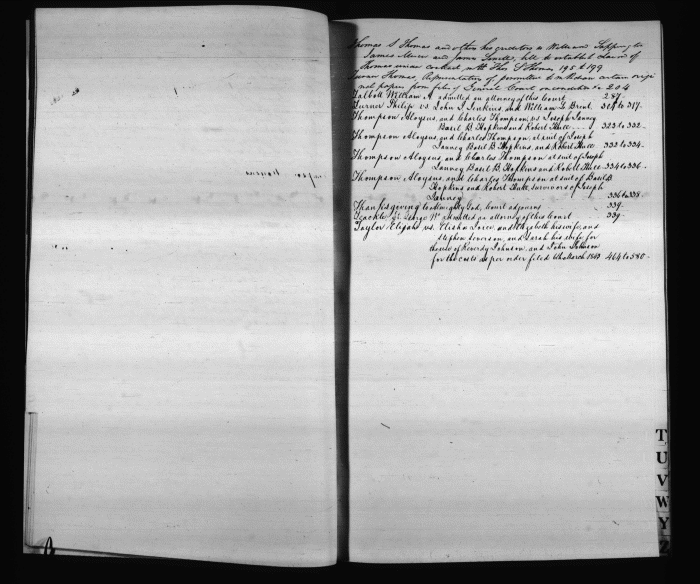 Thomas S Thomas and others his creditors vs William Sappington
James and James Sewell, bill to establish claim of
Thomas under contract with Thos. S Thomas 195 to 199
Turner Thomas, Representatives of permitted to withdraw certain origi
nal papers from files of General Court on condition &c 204
Talbott William A admitted an attorney of this Court 287
Turner Philip vs. John I Jenkins, and William G. Brent. 314 to 317.
Thompson Aloysus, and Charles Thompson, vs Joseph Lanney
Basil B. Hopkins and Robert Hull 323 to 332
Thompson Aloysus, and Charles Thompson, at suit of Joseph
Lanney Basil B. Hopkins, and Robert Hull 333 to 334
Thompson Aloysus, and Charles Thompson at suit of Joseph
Lanney Basil B. Hopkins, and Robert Hull 334 to 336
Thompson Aloysus, and Charles Thompson at suit of Basil B.
Hopkins and Robert Hull, survivors of Joseph
Lanney 336 to 338
Thanksgiving to Almighty God, Court adjourns 339
Teackle St. George W. admitted an attorney of this Court 339
Taylor Elijah vs. Elisha and Elizabeth his wife, and
Stephen and Sarah his wife for
the use of Reverdy Johnson, and John Johnson
for the costs as per order filed March 1843 464 to 580
T
U
V
W
Y
Z